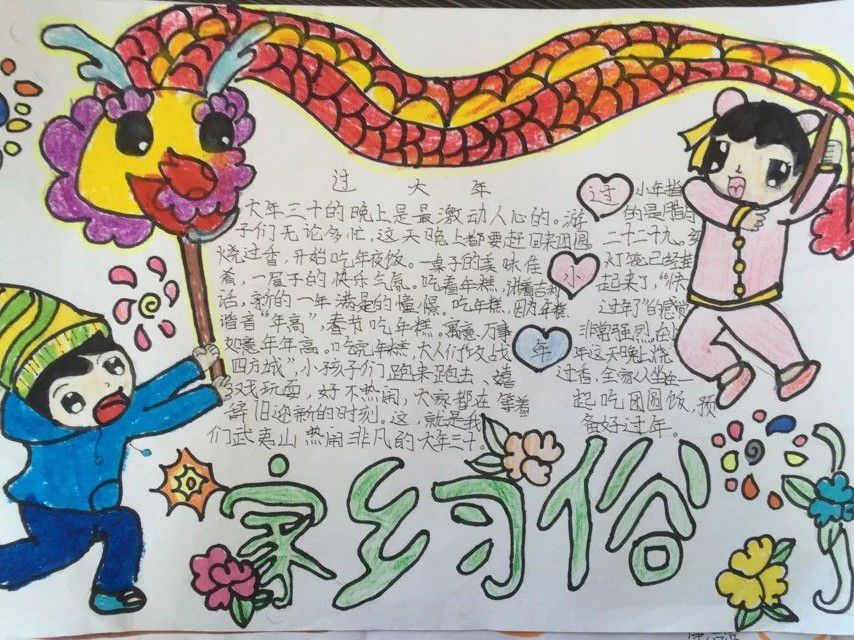 过大年
大年三十的晚上是最激动人心的。游
子们无论多忙,这天晚上都要赶回来团圆
烧过香,开始吃年夜饭。一桌子的美味佳
肴,一屋子的快乐气氛。吃着年糕,讲着吉利
话,新的一年满是的憧憬。吃年糕,因为年糕
谐音“年高”,春节吃年糕,寓意万事
如意年年高。吃完年糕,大人们攻战
四方城”,小孩子们跑来跑去、嬉
戏玩耍,好不热闹,大家都在等着
等旧迎新的时刻。这,就是我
们武夷山热闹非凡的大年三十。
过小年
小年指
的是腊月
二十二十九。
灯笼已经挂
起来了,“快
过年了”的感觉
非常强烈。在小
年这天晚上,烧
过香,全家人坐在一
起吃团圆饭,预
备好过年。
家乡习俗